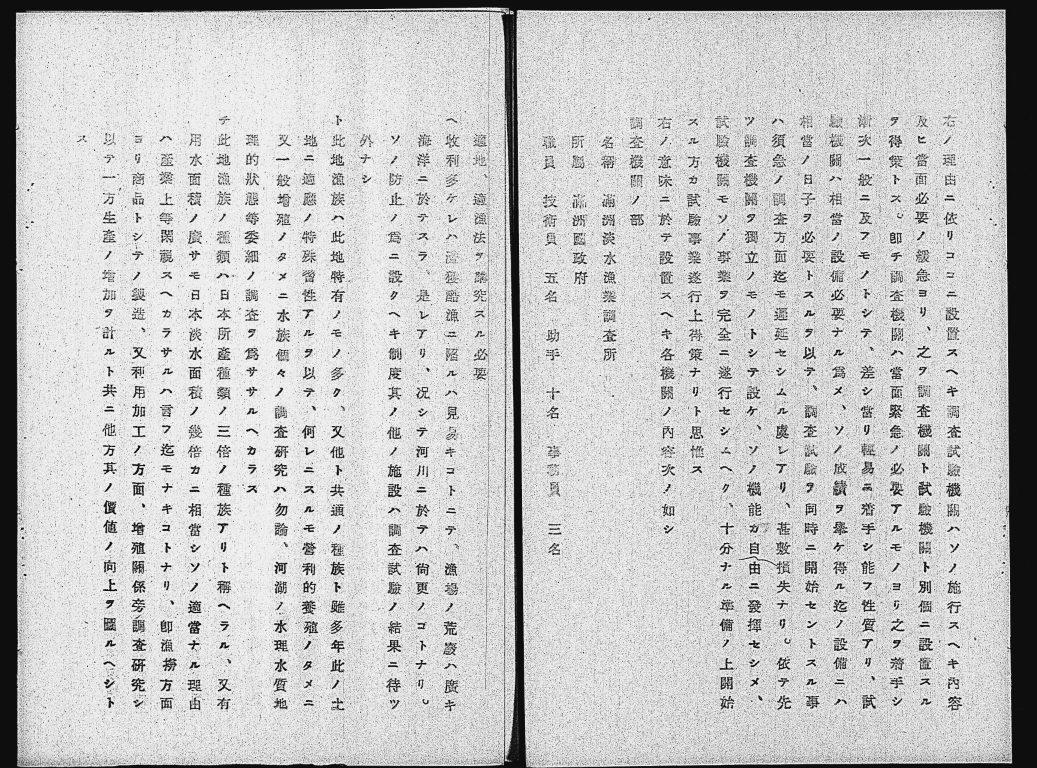 右ノ理由ニ依リココニ設置スヘキ調査試驗機關ハソノ施行スヘキ內容
及ヒ當面必要ノ緩急ヨリ、之ヲ調査機關ト試驗機關ト別個ニ設置スル
ヲ得策トス。卽チ調査機關ハ當面緊急ノ必要アルモノヨリ之ヲ着手シ
漸次一般ニ及フモノトシテ、差シ當リ輕易ニ着手シ能フ性質アリ、試
驗機關ハ相當ノ設備必要ナル爲メ、ソノ成績ヲ擧ケ得ル迄ノ設備ニハ
相當ノ日子ヲ必要トスルヲ以テ、調査試驗ヲ同時ニ開始セントスル事
ハ須急ノ調査方面迄モ遲延セシムル虞レアリ、甚敷損失ナリ。依テ先
ツ調査機關ヲ獨立ノモノトシテ設ケ、ソノ機能カ自由ニ發揮セシメ、
試驗機關モソノ事業ヲ完全ニ遂行セシムヘク、十分ナル準備ノ上開始
スル方カ試驗事業遂行上得策ナリト思惟ス
右ノ意味ニ於テ設置スヘキ各機關ノ內容次ノ如シ
調査機關ノ部
名稱 滿洲淡水漁業調査所
所屬 滿洲國政府
職員 技術員 五名 助手 十名 事務員 三名
適地、適漁法ヲ講究スル必要
ヘ收利多ケレハ濫獲酷漁ニ陷ルハ見易キコトニテ、漁場ノ荒廢ハ廣キ
海洋ニ於テスラ、是レアリ、況シテ河川ニ於テハ尙更ノコトナリ。
ソノ防止ノ爲ニ設クヘキ制度其ノ他ノ施設ハ調査試驗ノ結果ニ待ツ
外ナシ
ト此地漁族ハ此地特有ノモノ多ク、又他ト共通ノ種族ト雖多年此ノ土
地ニ適應ノ特殊習性アルヲ以テ、何レニスルモ營利的養殖ノタメニ
又一般增殖ノタメニ水族個々ノ調査硏究ハ勿論、河湖ノ水理水質地
理的狀態等委細ノ調査ヲ爲ササルヘカラス
チ此地漁族ノ種類ハ日本所產種類ノ三倍ノ種族アリト稱ヘラル、又有
用水面積ノ廣サモ日本淡水面積ノ幾倍カニ相當シソノ適當ナル理由
ハ產業上等閑視スヘカラサルハ言フ迄モナキコトナリ、卽漁撈方面
ヨリ商品トシテノ製造、又利用加工ノ方面、增殖關係旁調査硏究シ
以テ一方生產ノ增加ヲ計ルト共ニ他方其ノ價値ノ向上ヲ圖ルヘシト
ス